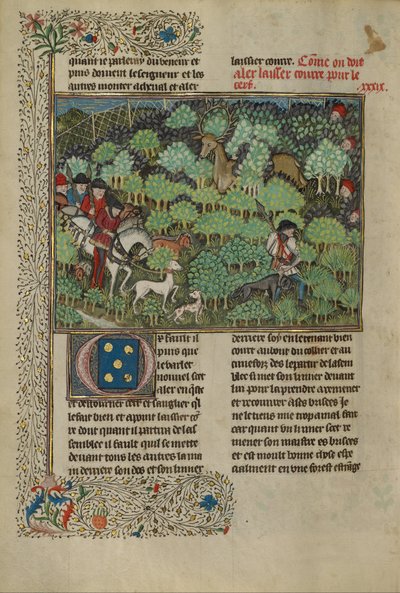 quant je parleray du veneur et
puis doivent le seigneur et les
autres monter a cheval et aler
laissier courre. Come on doit
aler laissier courre pour le
cerf. xxxix.
Or fault il
puis que
le varlet
nouvel scet
aler en queste
et destourner cerf et sanglier qͥl
le saiche bien et a point laissier cor̄
re dont quant il partira de las
semblee il fault quil se mette
devant tous les autres sa
main derriere son dos et son limier
derriere soy en le tenant bien
court au bout du collier et au
si des le partir de lasem
blee si met son limier devant
lui pour la prendre a remener
et recouvrer a ses brisees. Je
ne le tiens mie trop a mal fait
car quant un limier scet re
mener son maistre es brisees
et est moult bonne chose espe
cialment en une forest estrange